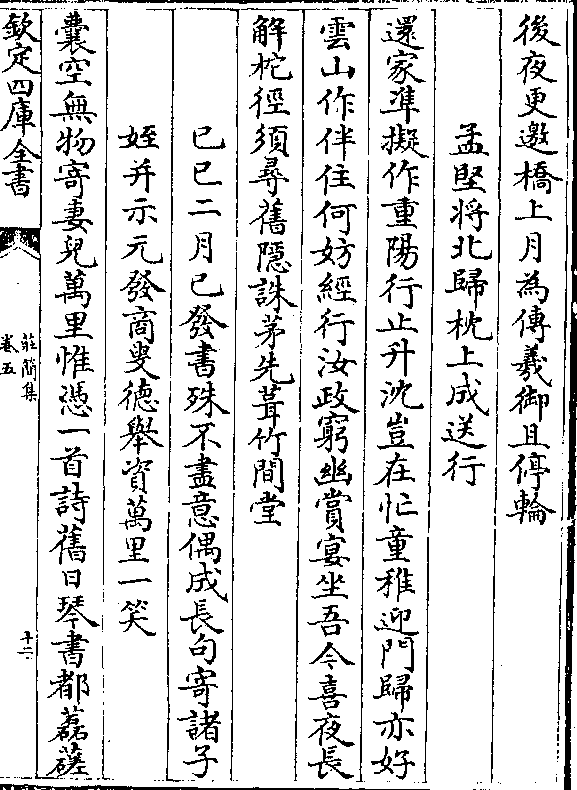 後夜更邀橋上月為傳羲御且停輪
孟堅將北歸枕上成送行
還家準擬作重陽行止升沈豈在忙童稚迎門歸亦好
雲山作伴住何妨經行汝政窮幽賞宴坐吾今喜夜長
解柁徑須尋舊隱誅茅先葺竹間堂
己巳二月已發書殊不盡意偶成長句寄諸子
姪并示元發商叟德舉資萬里一笑
囊空無物寄妻兒萬里惟憑一首詩舊日琴書都磊𥗬
欽定四庫全書
莊簡集
卷五
十二